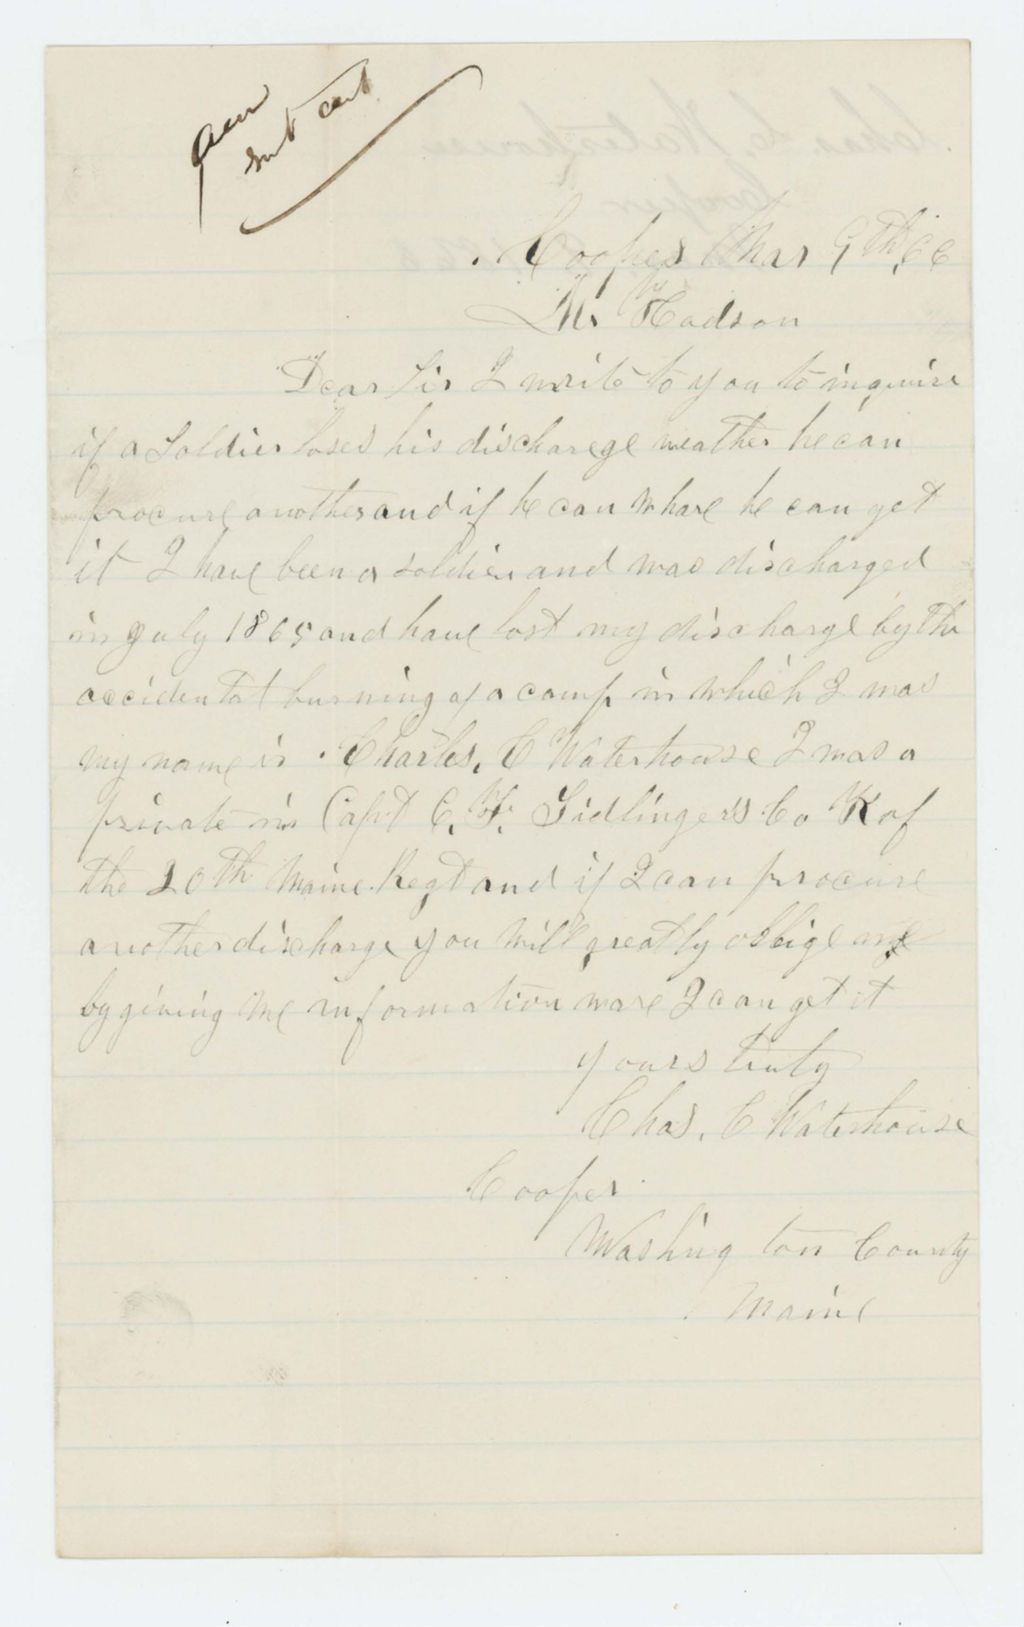 Ans
sent cert
Cooper Mar 9th, 66
Mr. Hodson
Dear Sir I write to you to inquire
if a Soldier loses his discharege weather he can
procure another and if he can whare he can get
it I have been a soldier and was discharged
in July 1865 and have lost my discharge by the
accidentat burning of a camp in which I was
my name is Charles, C Waterhouse I was a
private in Capt C. F. Sidlingers Co K of
the 20th Maine Regt and if I can procure
another discharge you will greatly oblige me
by giving me information ware I can get it
yours truly
Chas. C Waterhouse
Cooper
Washing ton County
Maine